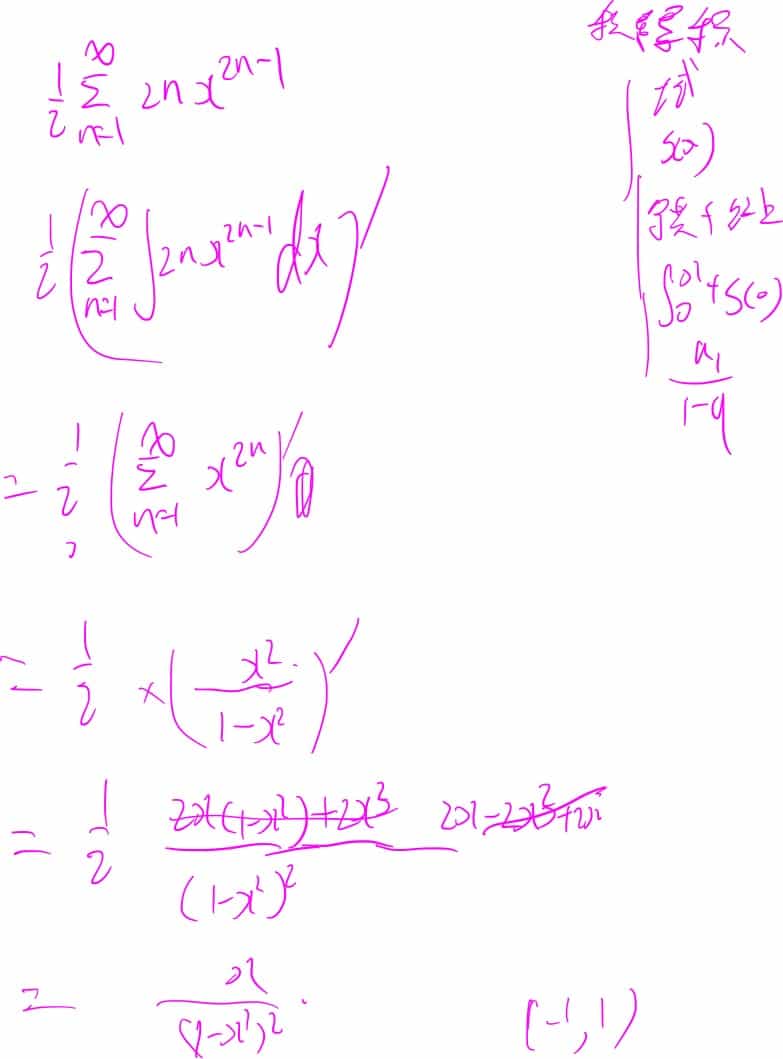 1/2 ∑_{n=1}^{∞} 2n x^{2n-1}
1/2 (∑_{n=1}^{∞} ∫ 2n x^{2n-1} dx)′
= 1/2 (∑_{n=1}^{∞} x^{2n})′
= 1/2 × (x^2 / (1-x^2))′
= 1/2 (2x(1-x^2)+2x^3 2x-2x^3+2x) / (1-x^2)^2
= x / (1-x^2)^2 (-1, 1)
域
S(x)
∫_0^x + S(0)
a_1 / (1-q)